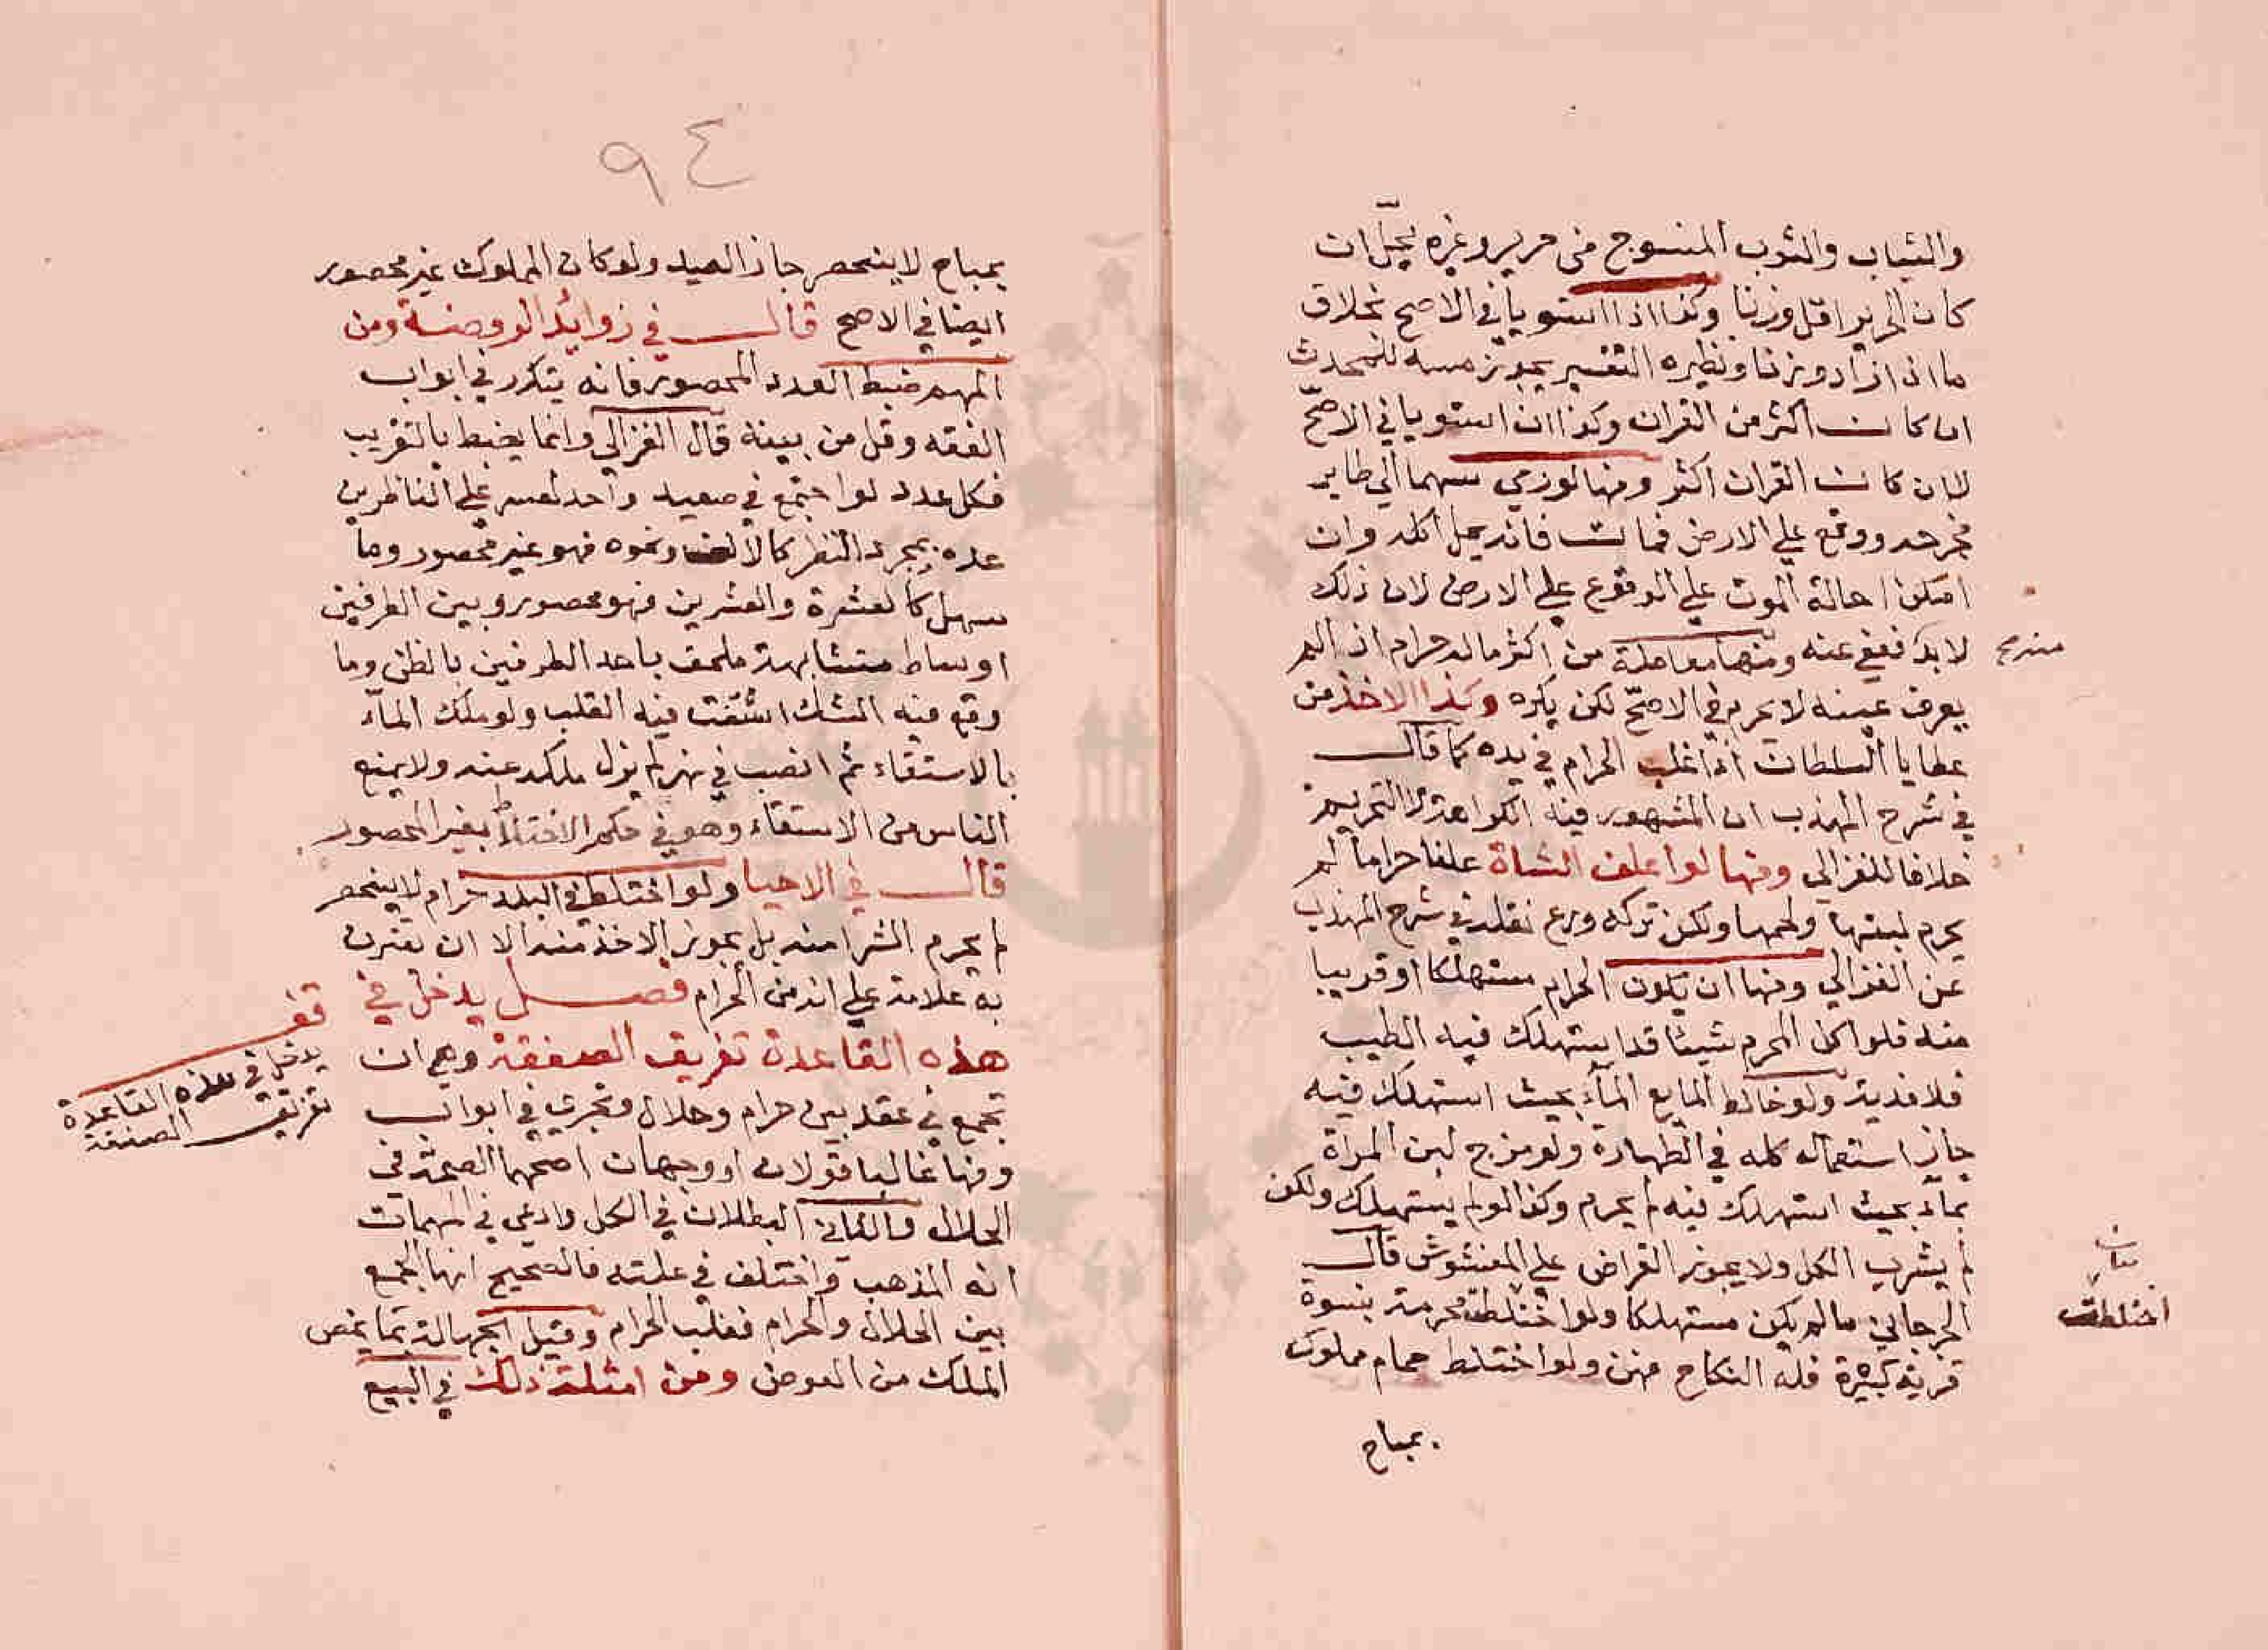 والثياب والثوب المنسوج من حرير وغيره يحل ان
كان الحرير اقل وزنا وكذا اذا استويا في الاصح بخلاف
ما اذا زاد وزنا ونظيره التفسير يجوز مسه للمحدث
ان كان اكثر من القران وكذا ان استويا في الاصح
لا ان كان القران اكثر ومنها لو رمي سهما الي طاير
فجرحه ووقع علي الارض فمات فانه يحل اكله وان
امكن احالة الموت علي الوقوع علي الارض لان ذلك
لا بد فعفي عنه ومنها معاملة من اكثر ماله حرام اذا لم
يعرف عينه لا يحرم في الاصح لكن يكره وكذا الاخذ من
عطايا السلطان اذا غلب الحرام في يده كما قال
في شرح المهذب ان المشهور فيه الكراهة لا التحريم
خلافا للغزالي ومنها لو اعلف الشاة علفا حراما لم
يحرم لبنها ولحمها ولكن تركه ورع نقله في شرح المهذب
عن الغزالي ومنها ان يكون الحرام مستهلكا او قريبا
منه فلو اكل المحرم شيئا قد استهلك فيه الطيب
فلا فدية ولو خالط المايع الماء بحيث استهلك فيه
جاز استعماله كله في الطهارة ولو مزج لبن المراة
بماء بحيث استهلك فيه لم يحرم وكذا لو لم يستهلك ولكن
لم يشرب الكل ولا يجوز القراض علي المغشوش قال
الجرجاني ما لم يكن مستهلكا ولو اختلطت محرمة بنسوة
قرية كبيرة فله النكاح منهن ولو اختلط حمام مملوك
بمباح
اختلطت
٩٤
بمباح لا ينحصر جاز الصيد ولو كان المملوك غير محصور
ايضا في الاصح قال في زوايد الروضة ومن
المهم ضبط العدد المحصور فانه يتكرر في ابواب
الفقه وقل من بينه قال الغزالي وانما يضبط بالتقريب
فكل عدد لو اجتمع في صعيد واحد لعسر علي الناظرين
عده بمجرد النظر كالالف ونحوه فهو غير محصور وما
سهل كالعشرة والعشرين فهو محصور وبين الطرفين
اوساط متشابهة ملحق باحد الطرفين بالظن وما
وقع فيه الشك استفت فيه القلب ولو ملك الماء
بالاستقاء ثم انصب في نهر لم يزل ملكه عنه ولا يمنع
الناس من الاستقاء وهو في حكم الاختلاط بغير المحصور
قال في الاحيا ولو اختلط في البلد حرام لا ينحصر
لم يحرم الشرا منه بل يجوز الاخذ منه الا ان تقترن
به علامة علي انه من الحرام فصل يدخل في
هذه القاعدة تفريق الصفقة وهي ان
تجمع في عقد بين حرام وحلال وتجري في ابواب
وفيها غالبا قولان او وجهان اصحهما الصحة في
الحلال والثاني البطلان في الكل وادعي في المهمات
انه المذهب واختلف في علته فالصحيح انها الجمع
بين الحلال والحرام فغلب الحرام وقيل الجهالة بما يخص
الملك من العوض ومن امثلة ذلك في البيع
قف
يدخل في هذه القاعدة
تفريق الصفقة